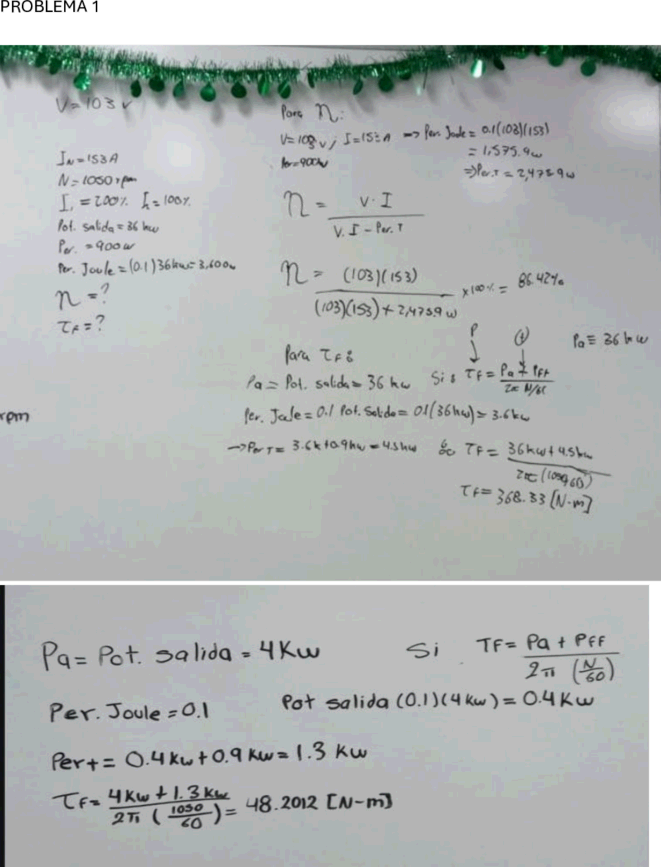 PROBLEMA 1
V = 103 v
I_N = 153 A
N = 1050 rpm
I, = 200% I_n = 100%
Pot. salida = 36 kw
Per. = 900 w
Per. Joule = (0.1) 36kw = 3,600w
n = ?
τ_F = ?
rpm
Para n:
V = 103 v; I = 153 A → Per. Joule = 0.1(103)(153)
Per = 900w
= 1,575.9w
⇒ Per. T = 2,475.9w
n = V·I / V.I - Per. T
n = (103)(153) / (103)(153) + 2,475.9 w x100% = 86.42%
Para τ_F:
P ↓ (+) ↓ Pa = 36 kw
Pa = Pot. salida = 36 kw Si: τ_F = Pa + Pff / 2π N/60
Per. Joule = 0.1 Pot. Salida = 0.1(36kw) = 3.6kw
→ Per T = 3.6k + 0.9kw = 4.5kw ∴ τ_F = 36kw + 4.5kw / 2π (1050/60)
τ_F = 368.33 [N-m]
Pa = Pot. salida = 4 Kw Si TF = Pa + PFF / 2π (N/60)
Per. Joule = 0.1 Pot salida (0.1)(4 kw) = 0.4 Kw
Per+ = 0.4 kw + 0.9 kw = 1.3 kw
τ_F = 4 Kw + 1.3 kw / 2π (1050/60) = 48.2012 [N-m]